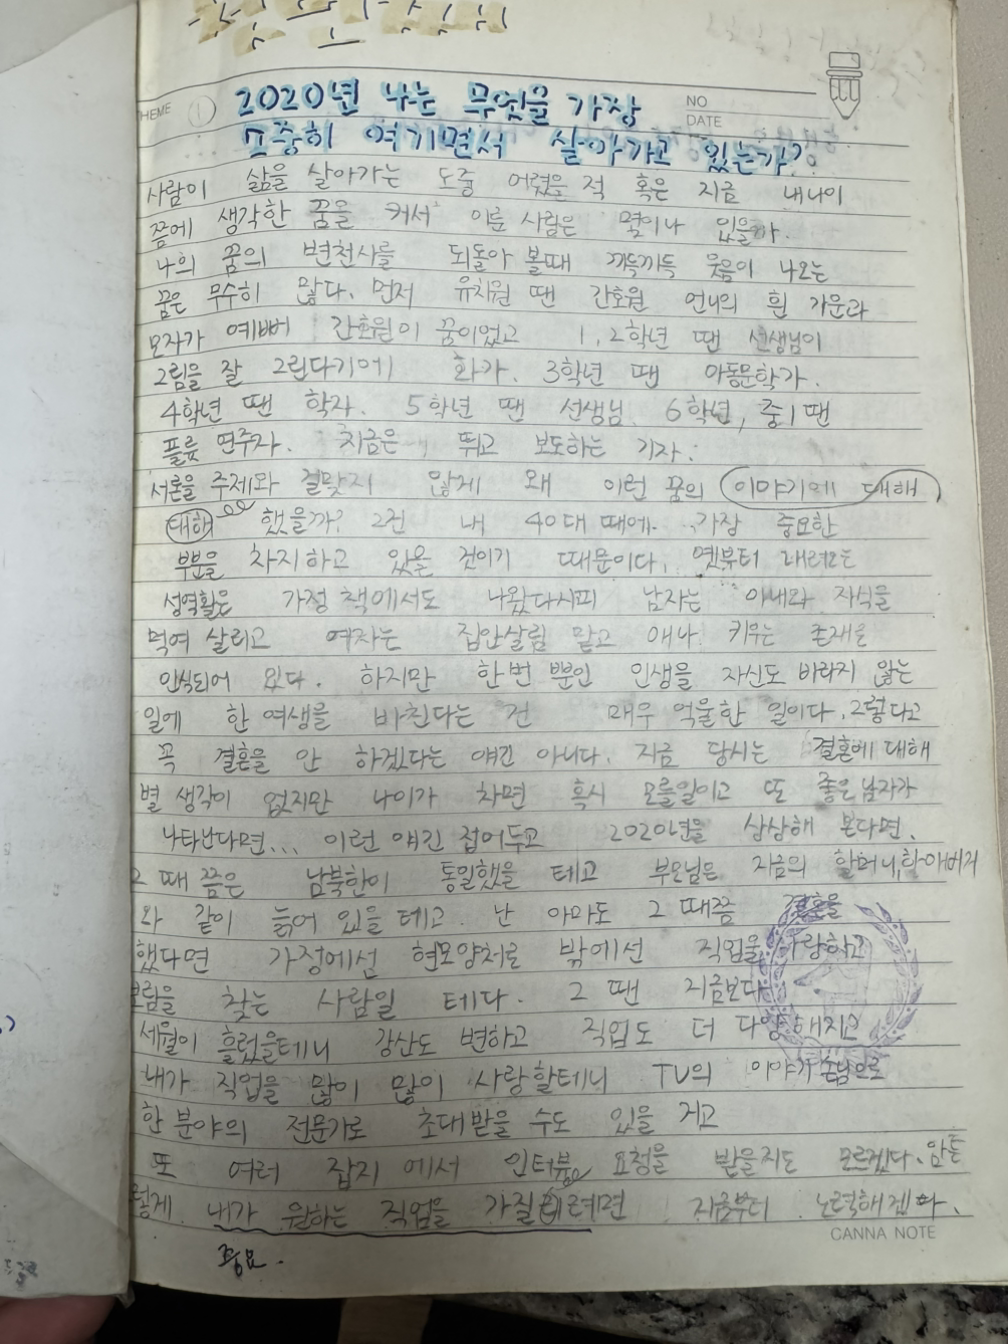 THEME 1 2020년 나는 무엇을 가장
NO
DATE
소중히 여기면서 살아가고 있는가?
사람이 삶을 살아가는 도중 어렸을 적 혹은 지금 내 나이
쯤에 생각한 꿈을 커서 이룬 사람은 몇이나 있을까.
나의 꿈의 변천사를 되돌아 볼때 끼득끼득 웃음이 나오는
꿈은 무수히 많다. 먼저 유치원 땐 간호원 언니의 흰 가운과
모자가 예뻐 간호원이 꿈이었고 1, 2학년 땐 선생님이
그림을 잘 그린다기에 화가. 3학년 땐 아동문학가.
4학년 땐 학자. 5학년 땐 선생님. 6학년, 중1 땐
플륫 연주자. 지금은, 뛰고 보도하는 기자.
서론을 주제와 걸맞지 않게 왜 이런 꿈의 이야기에 대해
대해 했을까? 그건 내 40대 때에 가장 중요한
부분을 차지하고 있을 것이기 때문이다. 옛부터 내려오는
성역활은 가정 책에서도 나왔다시피 남자는 아내와 자식을
먹여 살리고 여자는 집안살림 맡고 애나 키우는 존재로
인식되어 왔다. 하지만 한번 뿐인 인생을 자신도 바라지 않는
일에 한 여생을 바친다는 건 매우 억울한 일이다. 그렇다고
꼭 결혼을 안 하겠다는 얘긴 아니다. 지금 당시는 결혼에 대해
별 생각이 없지만 나이가 차면 혹시 모를일이고 또 좋은 남자가
나타난다면... 이런 얘긴 접어두고 2020년을 상상해 본다면,
그 때 쯤은 남북한이 통일했을 테고 부모님은 지금의 할머니, 할아버지
와 같이 늙어 있을 테고. 난 아마도 그 때쯤 결혼을
했다면 가정에선 현모양처로 밖에선 직업을 사랑하고
보람을 찾는 사람일 테다. 그 땐 지금보다
세월이 흘렀을테니 강산도 변하고 직업도 더 다양해지고
내가 직업을 많이 많이 사랑할테니 TV의 이야기 손님으로
한 분야의 전문가로 초대받을 수도 있을 거고
또 여러 잡지에서 인터뷰 요청을 받을지도 모르겠다. 암튼
내가 원하는 직업을 가질 지금부터 노력해겠다.
CANNA NOTE